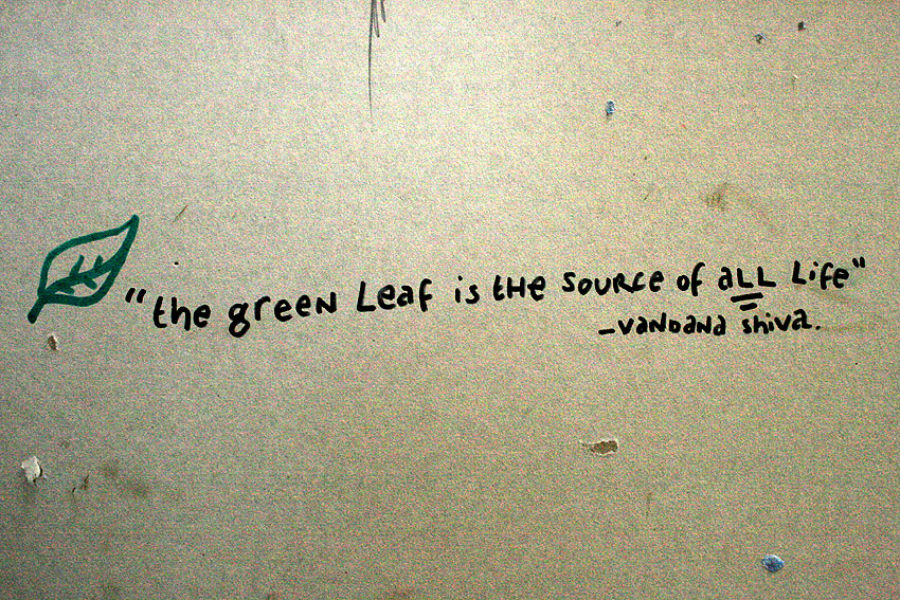 "the green Leaf is tHe source of aLL Life"
-vandana shiva.